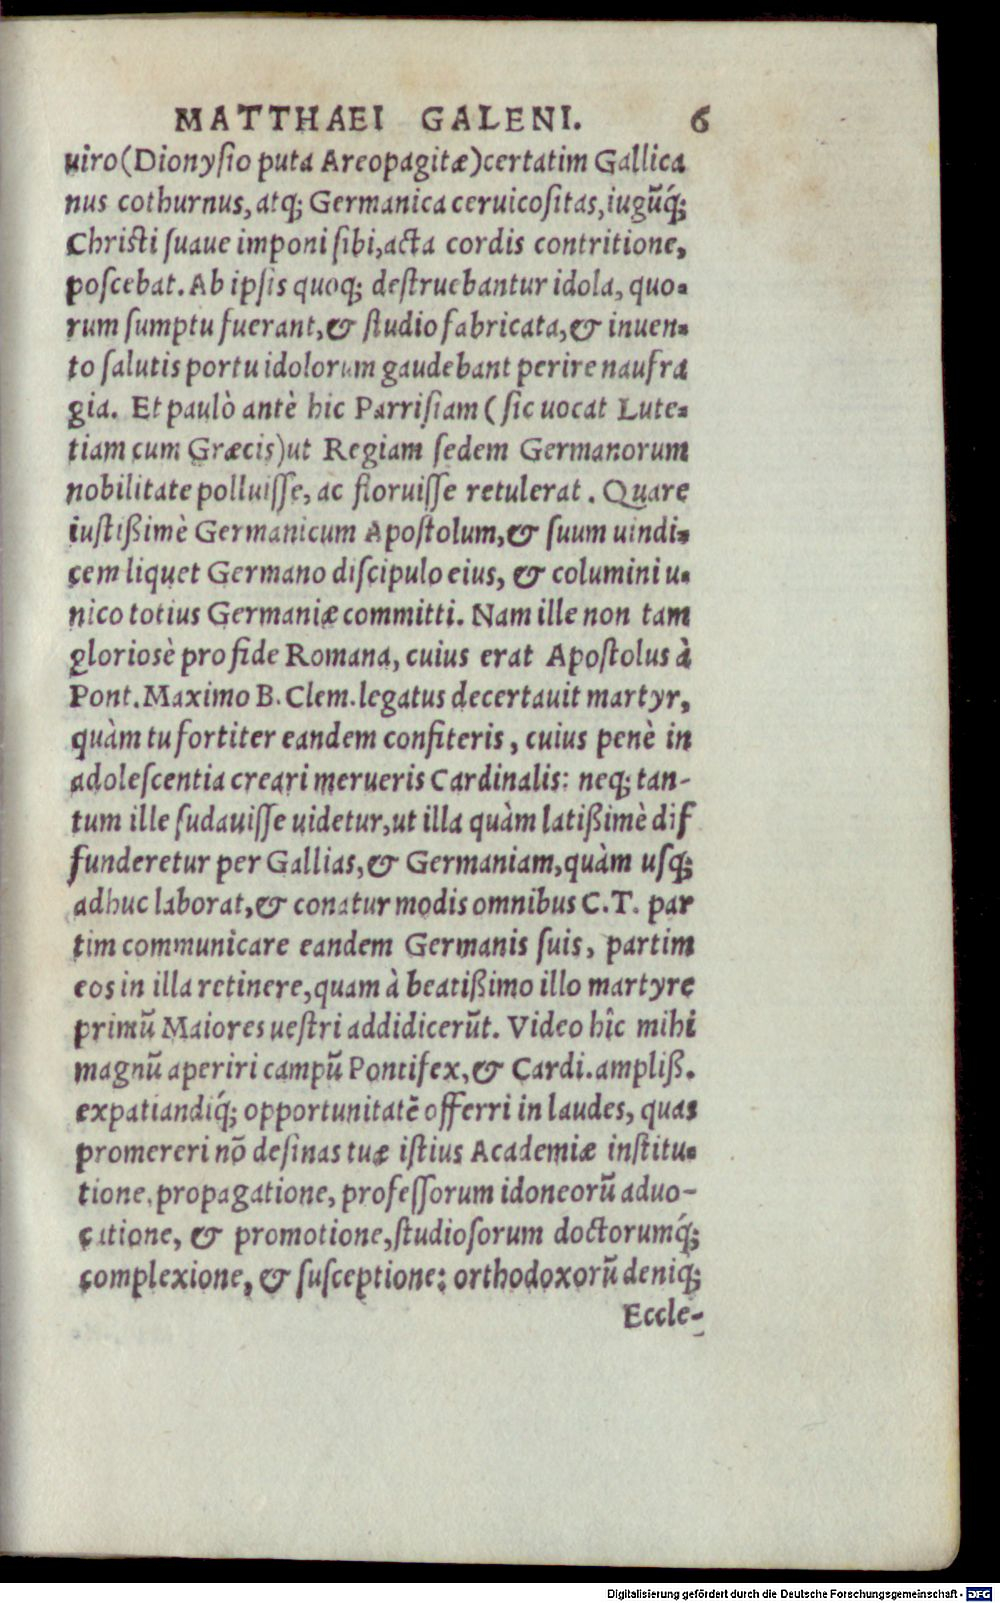 MATTHAEI GALENI. 6
uiro (Dionyſio puta Areopagitæ) certatim Gallica
nus cothurnus, atq; Germanica ceruicoſitas, iugũq́;
Chriſti ſuaue imponi ſibi, acta cordis contritione,
poſcebat. Ab ipſis quoq; deſtruebantur idola, quo-
rum ſumptu fuerant, & ſtudio fabricata, & inuen-
to ſalutis portu idolorum gaudebant perire naufra
gia. Et paulò antè hic Parriſiam (ſic uocat Lute-
tiam cum Græcis) ut Regiam ſedem Germanorum
nobilitate polluiſſe, ac floruiſſe retulerat. Quare
iuſtißimè Germanicum Apoſtolum, & ſuum uindi-
cem liquet Germano diſcipulo eius, & columini u-
nico totius Germaniæ committi. Nam ille non tam
gloriosè pro fide Romana, cuius erat Apoſtolus à
Pont. Maximo B. Clem. legatus decertauit martyr,
quàm tu fortiter eandem confiteris, cuius penè in
adoleſcentia creari merueris Cardinalis: neq; tan-
tum ille ſudauiſſe uidetur, ut illa quàm latißimè dif
funderetur per Gallias, & Germaniam, quàm uſq;
adhuc laborat, & conatur modis omnibus C.T. par
tim communicare eandem Germanis ſuis, partim
eos in illa retinere, quam à beatißimo illo martyre
primũ Maiores ueſtri addidicerũt. Video hîc mihi
magnũ aperiri campũ Pontifex, & Cardi. ampliß.
expatiandiq́; opportunitatẽ offerri in laudes, quas
promereri nõ deſinas tuæ iſtius Academiæ inſtitu-
tione, propagatione, profeſſorum idoneorũ aduo-
catione, & promotione, ſtudioſorum doctorumq́;
complexione, & ſuſceptione: orthodoxorũ deniq;
Eccle-
Digitalisierung gefördert durch die Deutsche Forschungsgemeinschaft - DFG